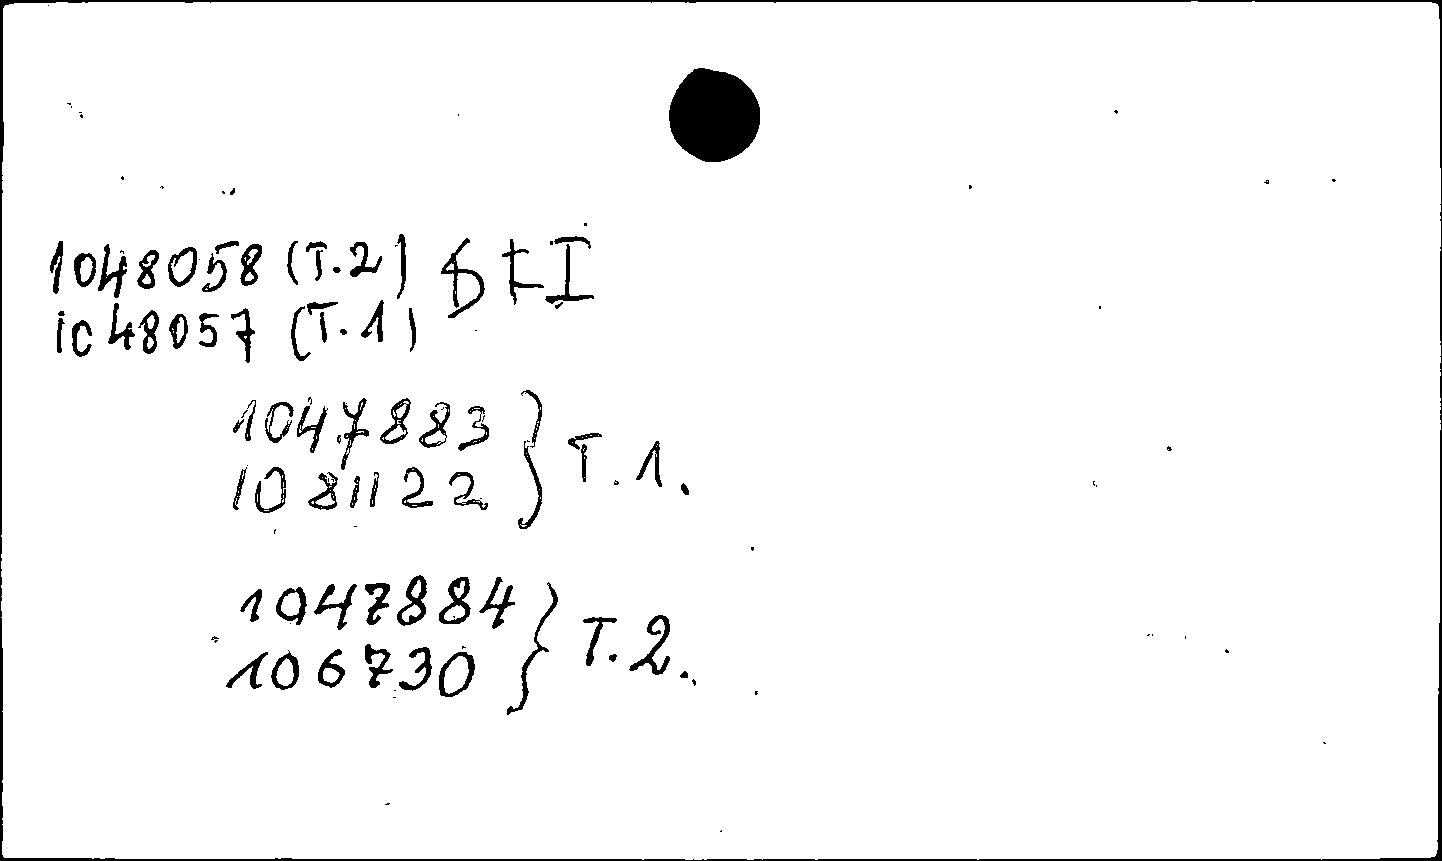 1048058 (T.2)
1048057 (T.1)
1047883
1081122 } T.1.
1047884
106730 } T.2.